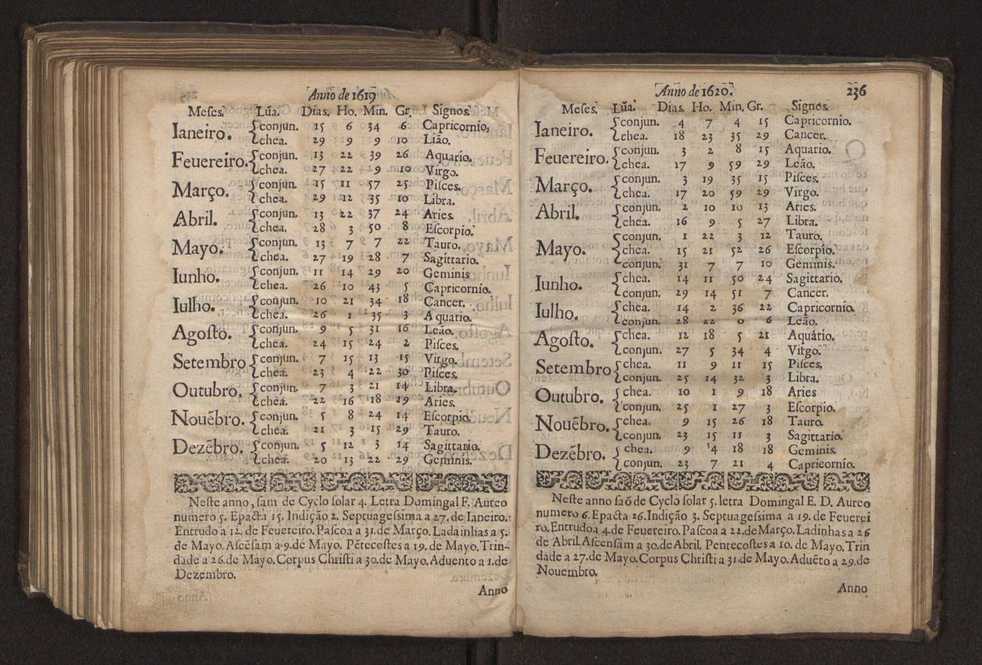 Anno de 1619
Meses. Lũa. Dias. Ho. Min. Gr. Signos.
Ianeiro. conjun. 15 6 34 6 Capricornio.
chea. 29 9 9 10 Lião.
Feuereiro. conjun. 13 22 39 26 Aquario.
chea. 27 22 9 10 Virgo.
Março. conjun. 15 11 57 25 Pisces.
chea. 29 12 35 10 Libra.
Abril. conjun. 13 22 37 24 Aries.
chea. 28 3 50 8 Escorpio.
Mayo. conjun. 13 7 7 22 Tauro.
chea. 27 19 28 7 Sagittario.
Iunho. conjun. 11 14 29 20 Geminis
chea. 26 10 43 5 Capricornio.
Iulho. conjun. 10 21 34 18 Cancer.
chea. 26 1 35 3 Aquatio.
Agosto. conjun. 9 5 31 16 Leão.
chea. 24 15 24 2 Pisces.
Setembro conjun. 7 15 13 15 Virgo.
chea. 23 4 22 30 Pisces.
Outubro, conjun. 7 3 21 14 Libra.
chea. 22 16 18 19 Aries.
Nouẽbro. conjun. 5 8 24 14 Escorpio.
chea. 21 3 15 29 Tauro.
Dezẽbro. conjun. 5 12 3 14 Sagittario.
chea. 20 13 22 29 Geminis.
Neste anno, sam de Cyclo solar 4. Letra Domingal F. Aureo
numero 5. Epacta 15. Indição 2. Septuagessima a 27. de Ianeiro.
Entrudo a 12. de Feuereiro. Pascoa a 31. de Março. Ladainhas a 5.
de Mayo. Ascẽsam a 9. de Mayo. Pẽtecostes a 19. de Mayo. Trin-
dade a 26. de Mayo. Corpus Christi a 30. de Mayo. Aduento a 1. de
Dezembro.
Anno
Anno de 1620. 236
Meses. Lũa. Dias. Ho. Min. Gr. Signos.
Ianeiro. conjun. 4 7 4 15 Capricornio.
chea. 18 23 35 29 Cancer.
Feuereiro. conjun. 3 2 8 15 Aquario.
chea. 17 9 59 29 Leão.
Março. conjun. 3 19 35 15 Pisces.
chea. 17 20 59 29 Virgo.
Abril. conjun. 2 10 10 13 Aries.
chea. 16 9 5 27 Libra.
Mayo. conjun. 1 22 3 12 Tauro.
chea. 15 21 52 26 Escorpio.
conjun. 31 7 7 10 Geminis.
Iunho. chea. 14 11 50 24 Sagittario.
conjun. 29 14 51 7 Cancer.
Iulho. chea. 14 2 36 22 Capricornio.
conjun. 28 22 0 6 Leão.
Agosto. chea. 12 18 5 21 Aquatio.
conjun. 27 5 34 4 Virgo.
Setembro chea. 11 9 11 15 Pisces.
conjun. 25 14 32 3 Libra.
Outubro. chea. 10 1 9 18 Aries
conjun. 25 1 27 3 Escorpio.
Nouẽbro. chea. 9 15 26 18 Tauro.
conjun. 23 15 11 3 Sagittario.
Dezẽbro. chea. 9 4 18 18 Geminis.
conjun. 23 7 21 4 Capricornio.
Neste anno são de Cyclo solar 5. letra Domingal E. D. Aureo
numero 6. Epacta 26. Indição 3. Septuagessima a 19. de Feuerei
ro. Entrudo a 4. de Feuereiro. Pascoa a 22. de Março. Ladinhas a 26
de Abril. Ascensam a 30. de Abril. Pentecostes a 10. de Mayo. Trin
dade a 27. de Mayo. Corpus Christi a 31. de Mayo. Aduẽto a 29. de
Nouembro.
Anno